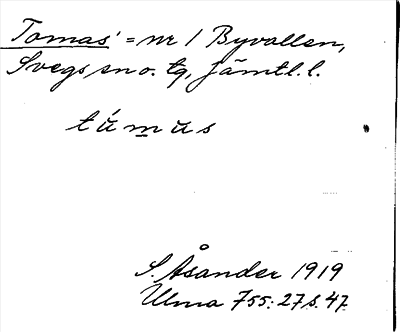 Tomas' = nr 1 Byvallen,
Svegs sn o. tg, Jämtl. l.
túmus
S. Åsander 1919
Ulma 755: 27 s. 47